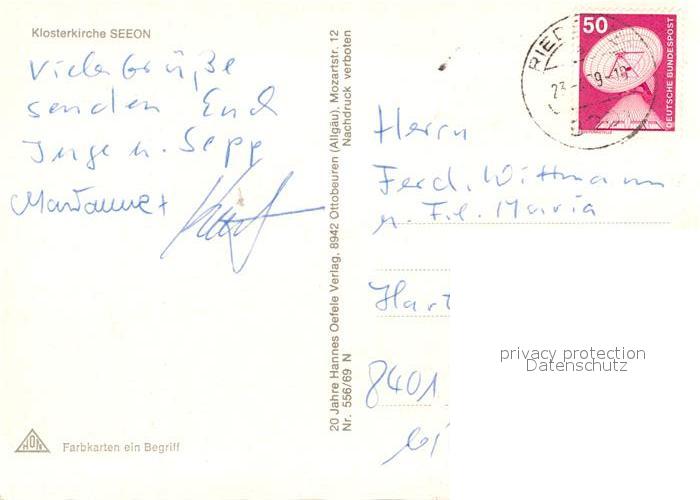 Klosterkirche SEEON
Viele Grüße
senden Euch
Inge u. Sepp
Marianne +
20 Jahre Hannes Oefele Verlag, 8942 Ottobeuren (Allgäu), Mozartstr. 12
Nr. 556/69 N
Nachdruck verboten
HON
Farbkarten ein Begriff
RIED
23
9-18
50
DEUTSCHE BUNDESPOST
Herrn
Ferd. Wittmann
u. Frl. Maria
Hart
8401
privacy protection
Datenschutz